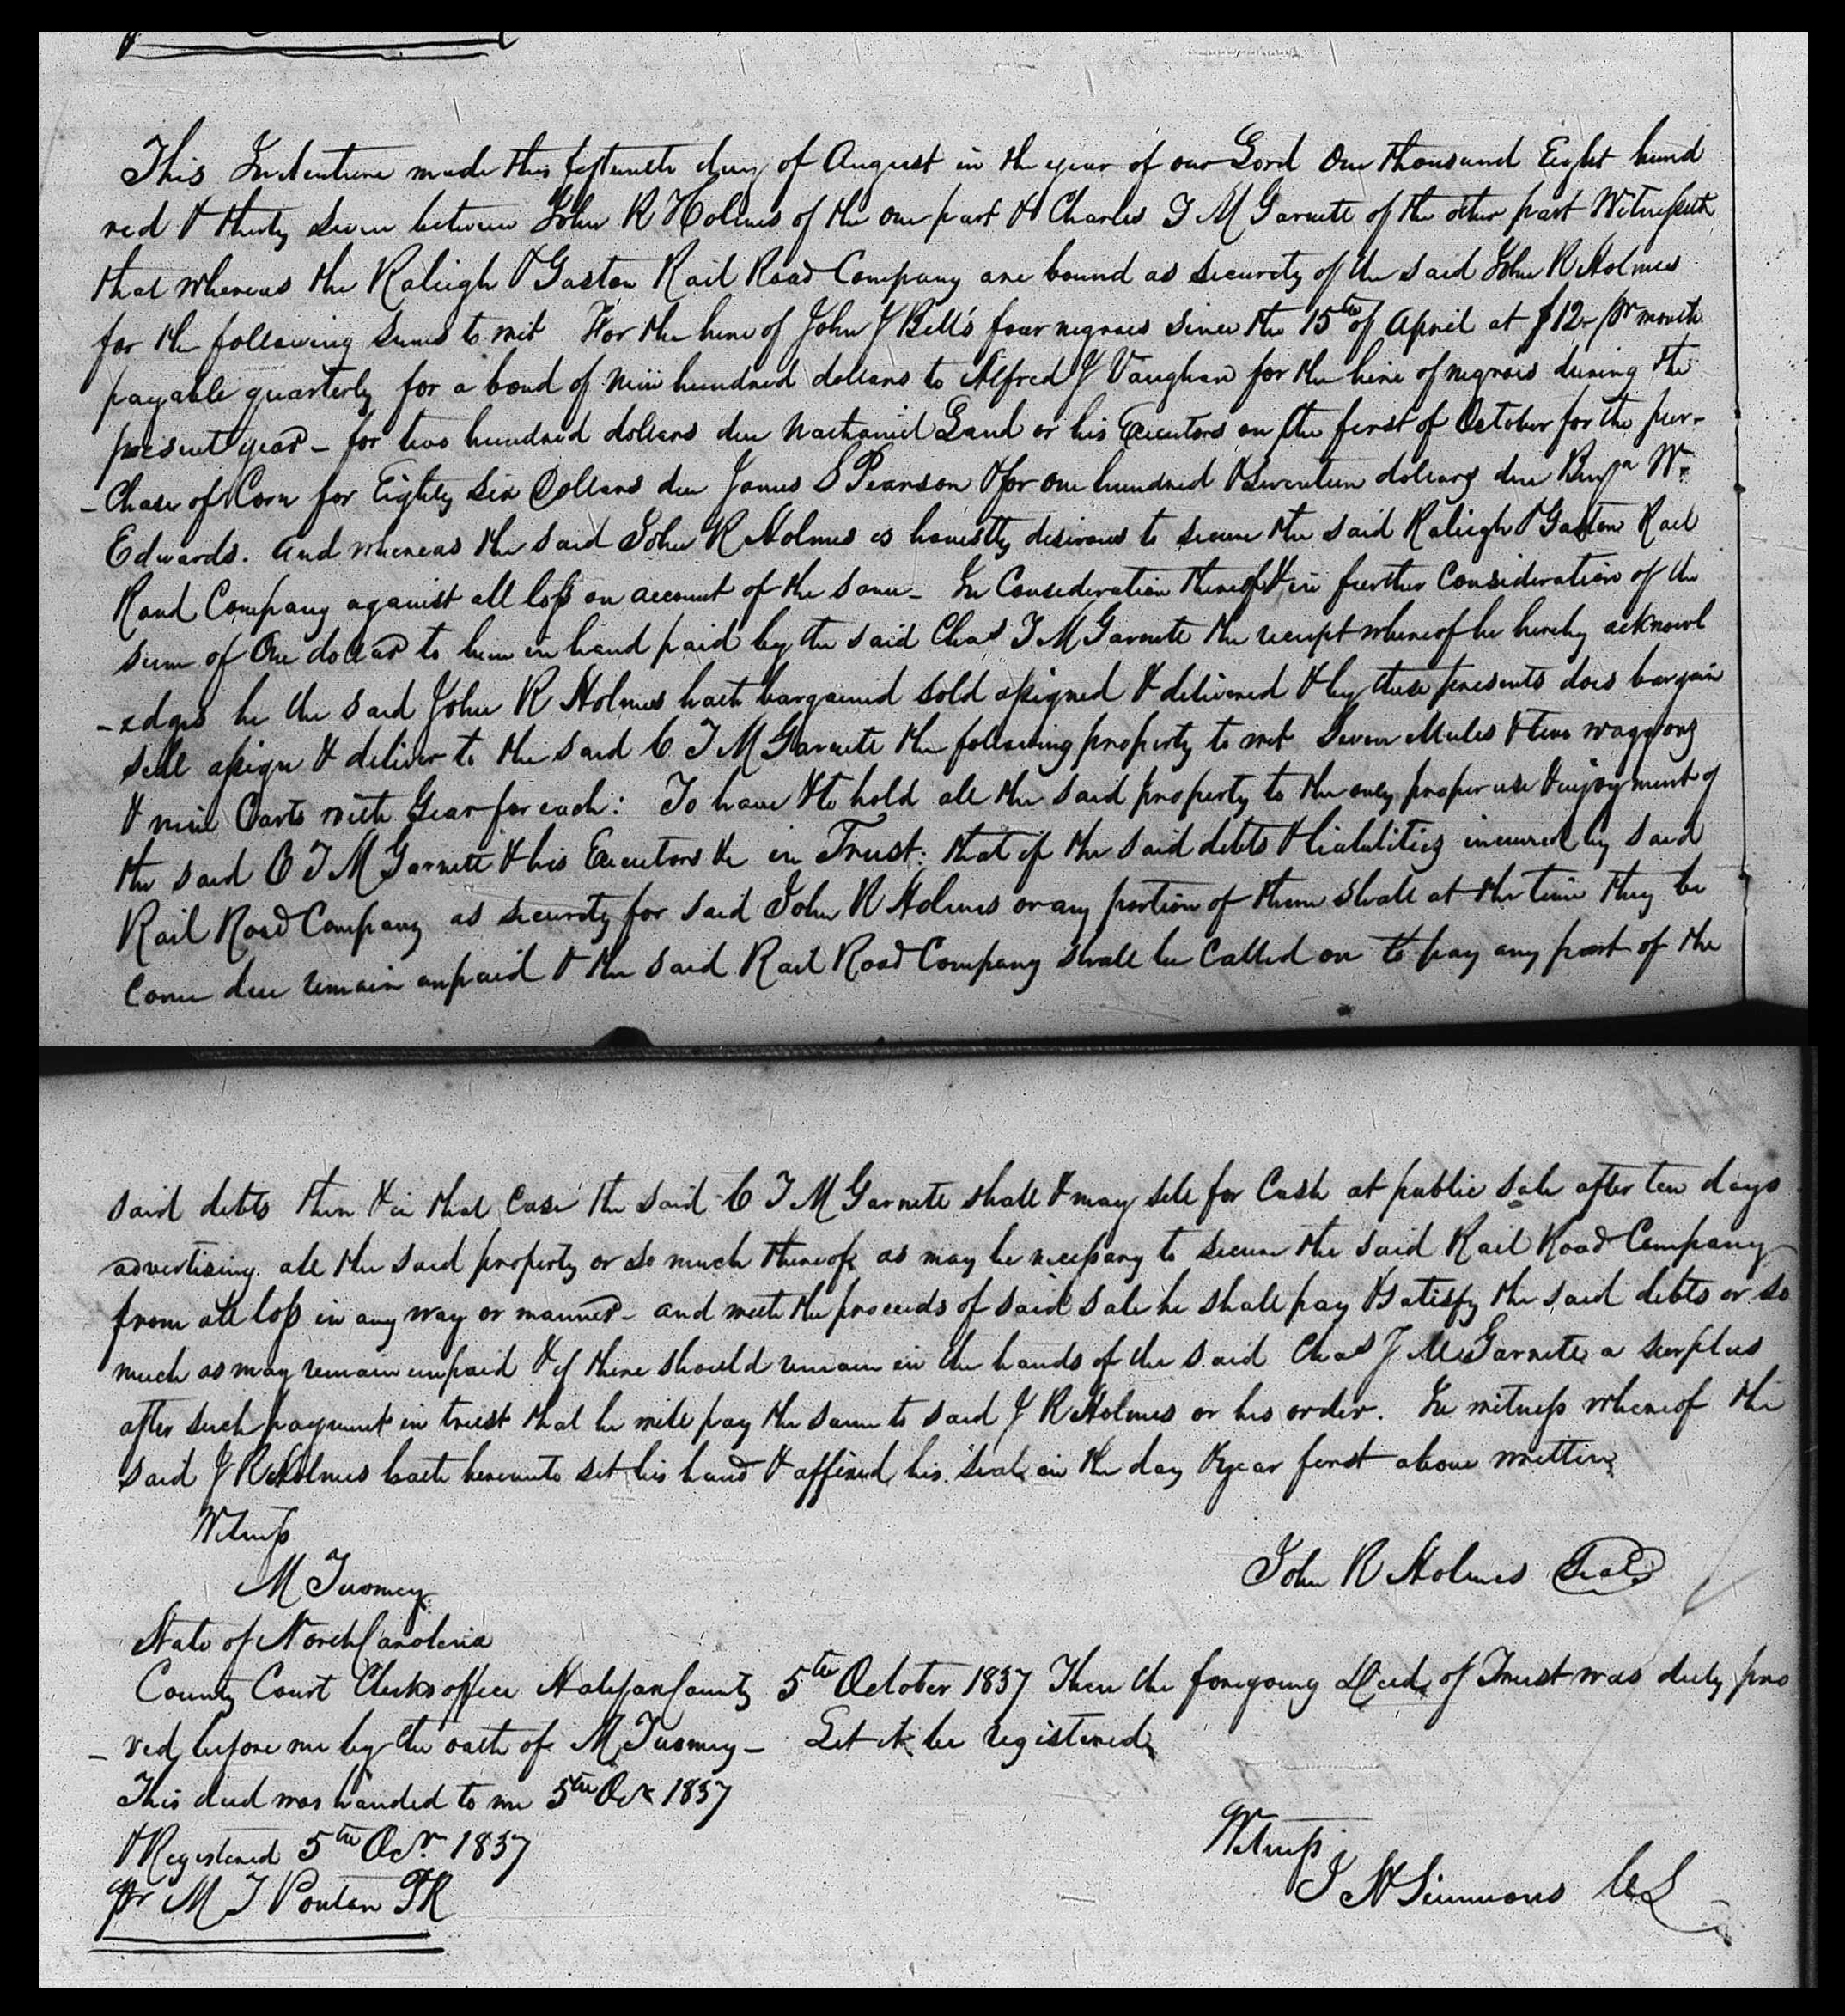 This Indenture made this fifteenth day of August in the year of our Lord One thousand Eight hund
red & thirty seven between John R Holmes of the one part & Charles T M Garnett of the other part Witnesseth
that whereas the Raleigh & Gaston Rail Road Company are bound as security of the said John R Holmes
for the following sums to wit For the hire of John J Bell's four negroes since the 15th of April at $12 pr month
payable quarterly for a bond of nine hundred dollars to Alfred J Vaughan for the hire of negroes during the
present year - for two hundred dollars due Nathaniel Land or his Executors on the first of October for the pur-
- chase of Corn for Eighty Six Dollars due James S Pearson & for one hundred & seventeen dollars due Benja Wm
Edwards. And whereas the said John R Holmes is honestly desirous to secure the said Raleigh & Gaston Rail
Road Company against all loss on account of the same - In Consideration thereof & in further Consideration of the
sum of One dollar to him in hand paid by the said Chas T M Garnett the receipt whereof he hereby acknowl
- edges he the said John R Holmes hath bargained sold assigned & delivered & by these presents does bargain
sell assign & deliver to the said C T M Garnett the following property to wit Seven Mules & two waggons
& nine Carts with Gear for each: To have & to hold all the said property to the only proper use & enjoyment of
the said C T M Garnett & his Executors &c in Trust: that if the said debts & liabilities incurred by said
Rail Road Company as security for said John R Holmes or any portion of them shall at the time they be
come due remain unpaid & the said Rail Road Company shall be Called on to pay any part of the
said debts then & in that Case the said C T M Garnett shall & may sell for Cash at public sale after ten days
advertising all the said property or so much thereof as may be necessary to secure the said Rail Road Company
from all loss in any way or manner - and with the proceeds of said sale he shall pay & satisfy the said debts or so
much as may remain unpaid & if there should remain in the hands of the said Chas T M Garnett a surplus
after such payment in trust that he will pay the same to said J R Holmes or his order. In witness whereof the
said J R Holmes hath hereunto set his hand & affixed his seal on the day & year first above written
Witness
M Tuomey
John R Holmes Seal
State of North Carolina
County Court Clerks office Halifax County 5th October 1837 Then the foregoing Deed of Trust was duly pro
- ved before me by the oath of M Tuomey - Let it be registered
This deed was handed to me 5th Oct 1837
& Registered 5th Octr 1837
Witness
pr M T Ponton PR
J H Simmons